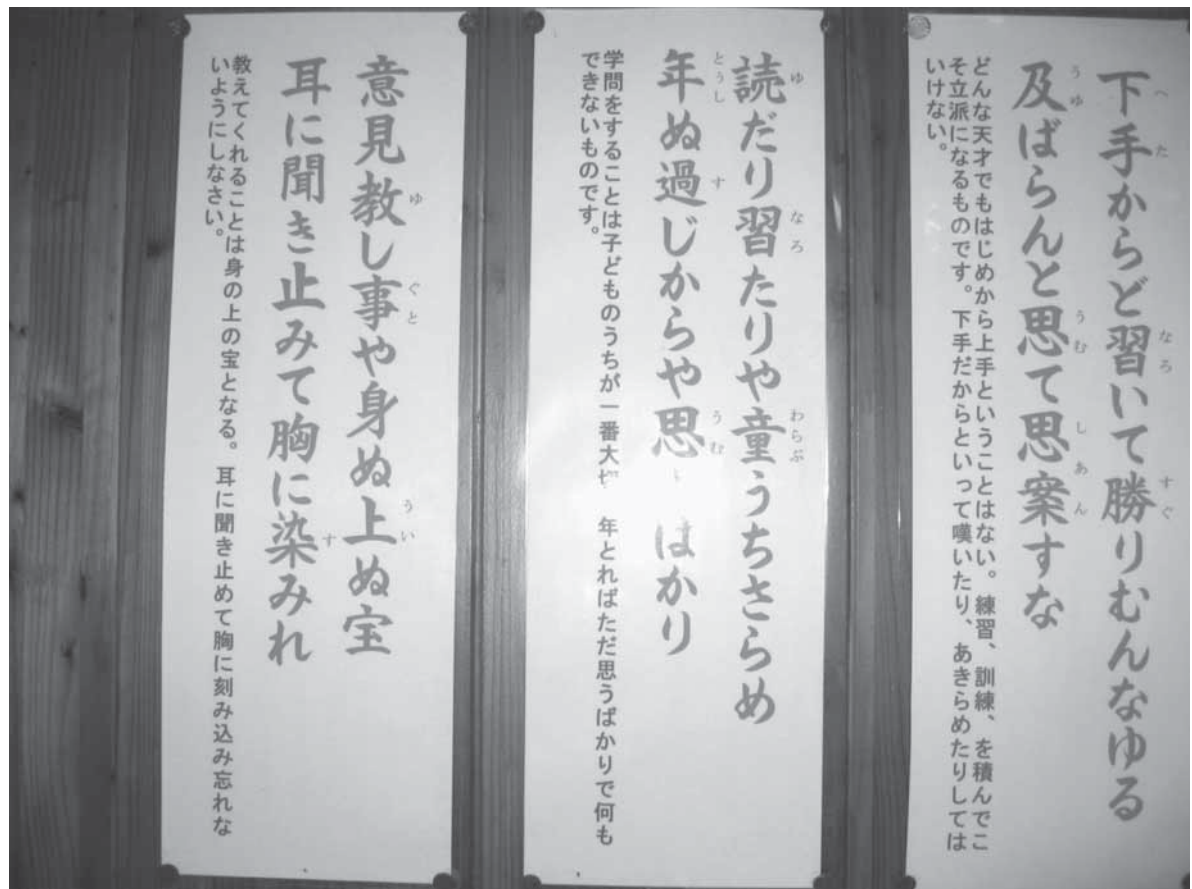 下手からど習いて勝りむんなゆる
及ばらんと思て思案すな
どんな天才でもはじめから上手ということはない。練習、訓練、を積んでこ
そ立派になるものです。下手だからといって嘆いたり、あきらめたりしては
いけない。
読だり習たりや童うちさらめ
年ぬ過じからや思 はかり
学問をすることは子どものうちが一番大 年とればただ思うばかりで何も
できないものです。
意見教し事や身ぬ上ぬ宝
耳に聞き止みて胸に染みれ
教えてくれることは身の上の宝となる。耳に聞き止めて胸に刻み込み忘れな
いようにしなさい。